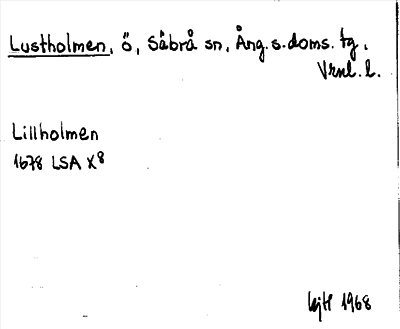 Lustholmen, ö, Säbrå sn, Ång.s.doms. tg.
Vrnl. l.
Lillholmen
1678 LSA X8
1968